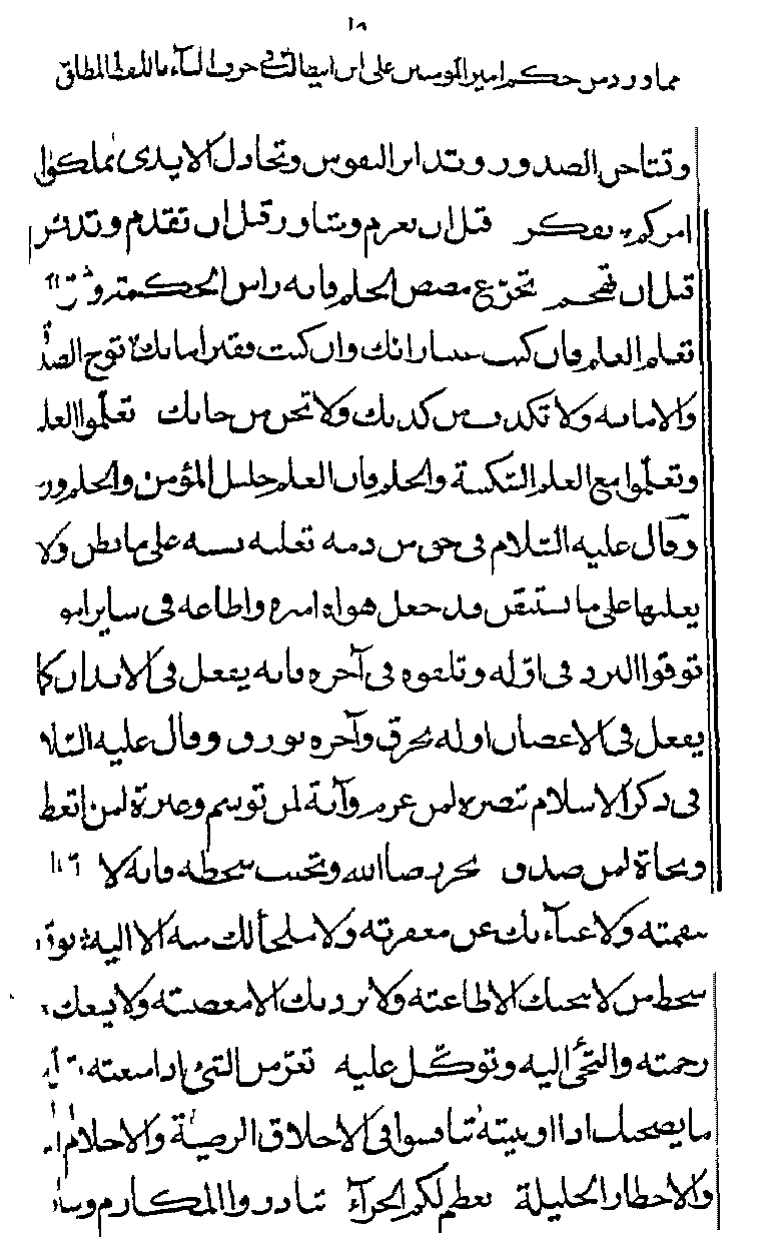 ١٨
مما ورد من حكم امير المؤمنين على ابن ابيطالب فى حرف التاء باللفظ المطلق
وتناحى الصدور وتدابر النفوس وتخاذل الايدى تملكوا
امركم تفكر قبل ان تعزم وشاور قبل ان تقدم وتدبر
قبل ان تهجم تجرع مضض الحلم فانه راس الحكمة و
تعلم العلم فان كنت غنيا زانك وان كنت فقيرا مانك توخ الصد
والامانه ولا تكذب من كذبك ولا تخن من خانك تعلموا العلم
وتعلموا مع العلم السكينة والحلم فان العلم خليل المؤمن والحلم وز
وقال عليه السلام فى حق من ذمه تغلبه نفسه على ما يظن ولا
يغلبها على ما يستيقن قد جعل هواه اميره واطاعه فى ساير امو
توقوا البرد فى اوله وتلقوه فى آخره فانه يفعل فى الابدان كما
يفعل فى الاغصان اوله يحرق وآخره يورق وقال عليه السلا
فى ذكر الاسلام تبصرة لمن عزم وآية لمن توسم وعبرة لمن اتعظ
ونجاة لمن صدق تحر رضا الله وتجنب سخطه فانه لا
بنقمته ولا غناء بك عن مغفرته ولا ملجأ لك منه الا اليه توق
سخط من لا ينجيك الا طاعته ولا يرديك الا معصيته ولا يسعك
رحمته والتجئ اليه وتوكل عليه تعز من الشئ اذا منعته
ما يصحبك اذا اوتيته تنافسوا فى الاخلاق الرضية والاحلام
والاخطار الجليلة يعظم لكم الجزآء تبادروا المكارم وسا